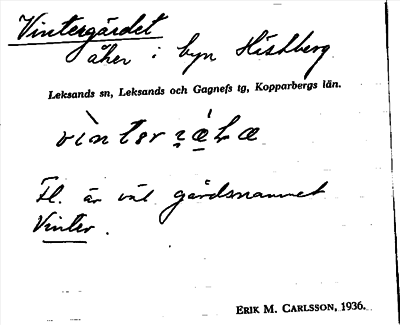 Vintergärdet
åker i byn Hisvlberg
Leksands sn, Leksands och Gagnefs tg, Kopparbergs län.
vinter
Fl. är väl gårdsnamnet
Vinter.
ERIK M. CARLSSON, 1936.